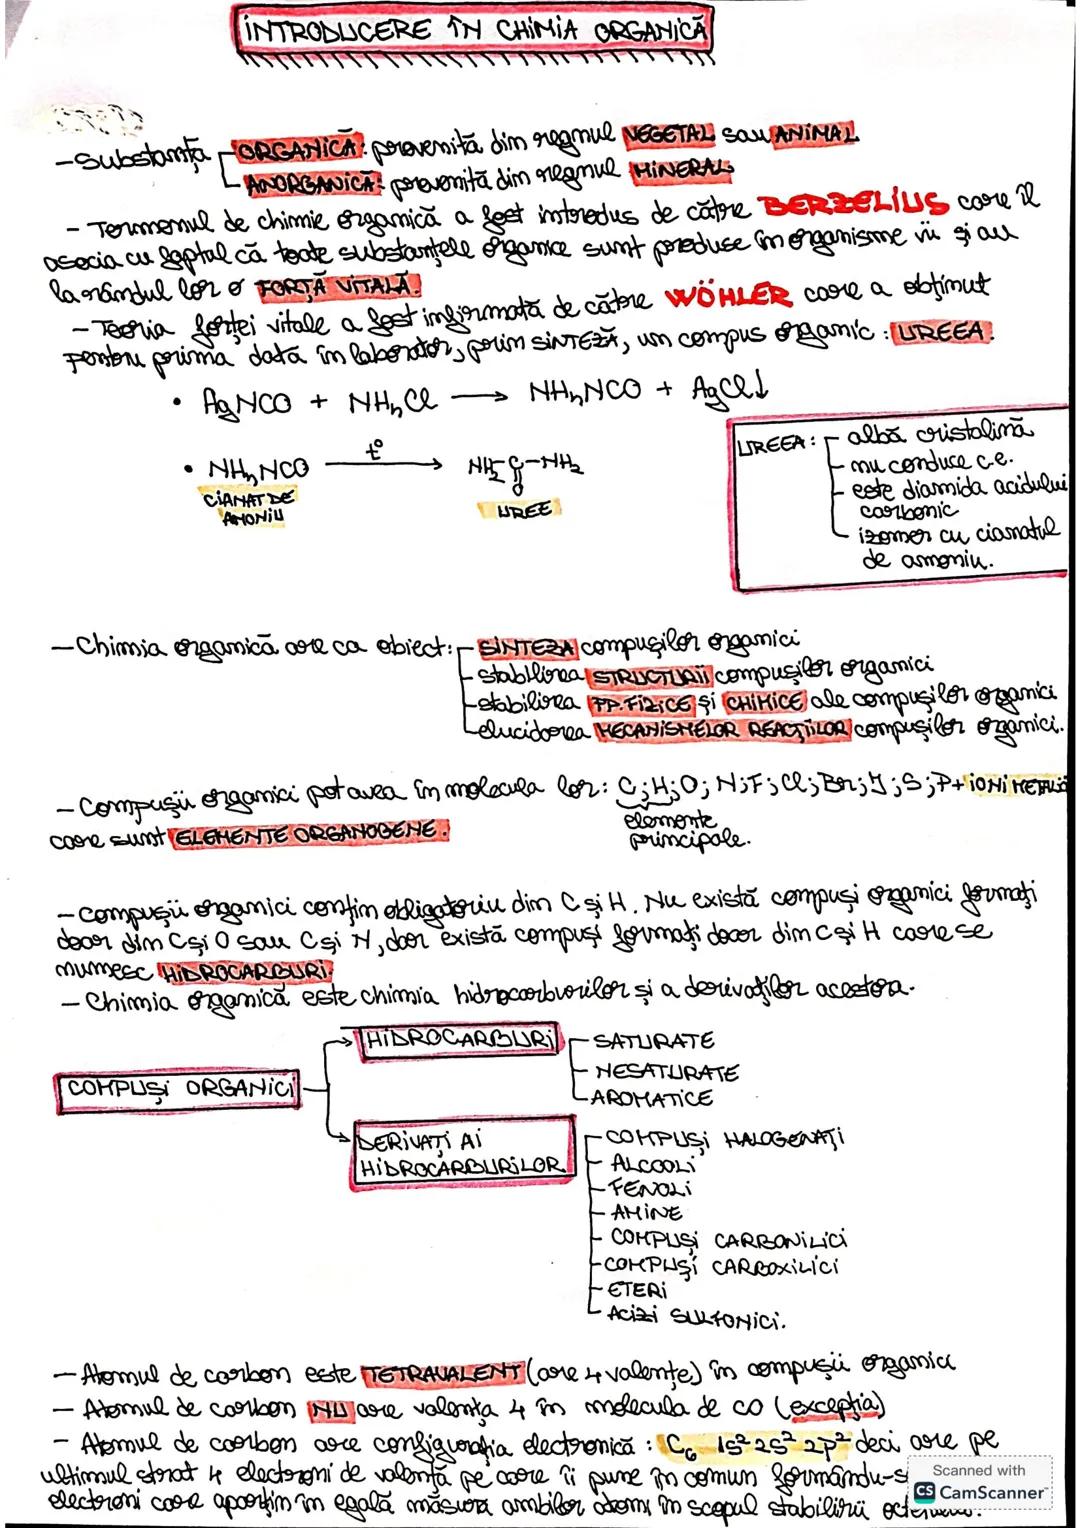 INTRODUCERE ÎN CHIMIA ORGANICĂ
- Substanța ORGANICĂ: provenită din regnul VEGETAL sau ANIMAL
ANORGANICĂ: provenită din regnul MINERAL
- Termenul de chimie organică a fost introdus de către BERZELIUS care îl
asocia cu faptul că toate substanțele organice sunt produse în organisme vii și au
la rândul lor o FORȚĂ VITALĂ.
- Teoria forței vitale a fost infirmată de către WÖHLER care a obținut
pentru prima dată în laborator, prin SINTEZĂ, un compus organic: UREEA.
• AgNCO + NH₄Cl → NH₄NCO + AgCl↓
UREEA: - albă cristalină
- nu conduce c.e.
- este diamida acidului
carbonic
- izomer cu cianatul
de amoniu.
• NH₄NCO t° → NH₂-C-NH₂
O
CIANAT DE
AMONIU
UREE
- Chimia organică are ca obiect: - SINTEZA compușilor organici
- stabilirea STRUCTURII compușilor organici
- stabilirea PP. FIZICE și CHIMICE ale compușilor organici
- elucidarea MECANISMELOR REACȚIILOR compușilor organici.
- Compușii organici pot avea în molecula lor: C; H; O; N; F; Cl; Br; I; S; P + IONI METALICI
care sunt ELEMENTE ORGANOGENE.
elemente
principale.
- Compușii organici conțin obligatoriu din C și H. Nu există compuși organici formați
doar din C și O sau C și N, dar există compuși formați doar din C și H care se
numesc HIDROCARBURI.
- Chimia organică este chimia hidrocarburilor și a derivaților acestora.
COMPUȘI ORGANICI
HIDROCARBURI
- SATURATE
- NESATURATE
- AROMATICE
DERIVAȚI AI
HIDROCARBURILOR
- COMPUȘI HALOGENAȚI
- ALCOOLI
- FENOLI
- AMINE
- COMPUȘI CARBONILICI
- COMPUȘI CARBOXILICI
- ETERI
- ACIZI SULFONICI.
- Atomul de carbon este TETRAVALENT (are 4 valențe) în compușii organici
- Atomul de carbon NU are valența 4 în molecula de CO (excepția)
- Atomul de carbon are configurația electronică: C₆ 1s² 2s² 2p² deci are pe
ultimul strat 4 electroni de valență pe care îi pune în comun formându-s
electroni care aparțin în egală măsură ambilor atomi în scopul stabilirii
Scanned with
CS CamScanner